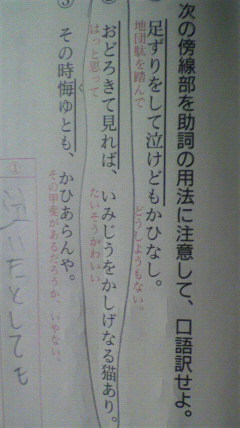 次の傍線部を助詞の用法に注意して、口語訳せよ。
足ずりをして泣けどもかひなし。
地団駄を踏んで
どうしようもない。
おどろきて見れば、いみじうをかしげなる猫あり。
はっと思って
たいそうかわいい
③ その時悔ゆとも、かひあらんや。
その甲斐があるだろうか、いやない。
だとしても